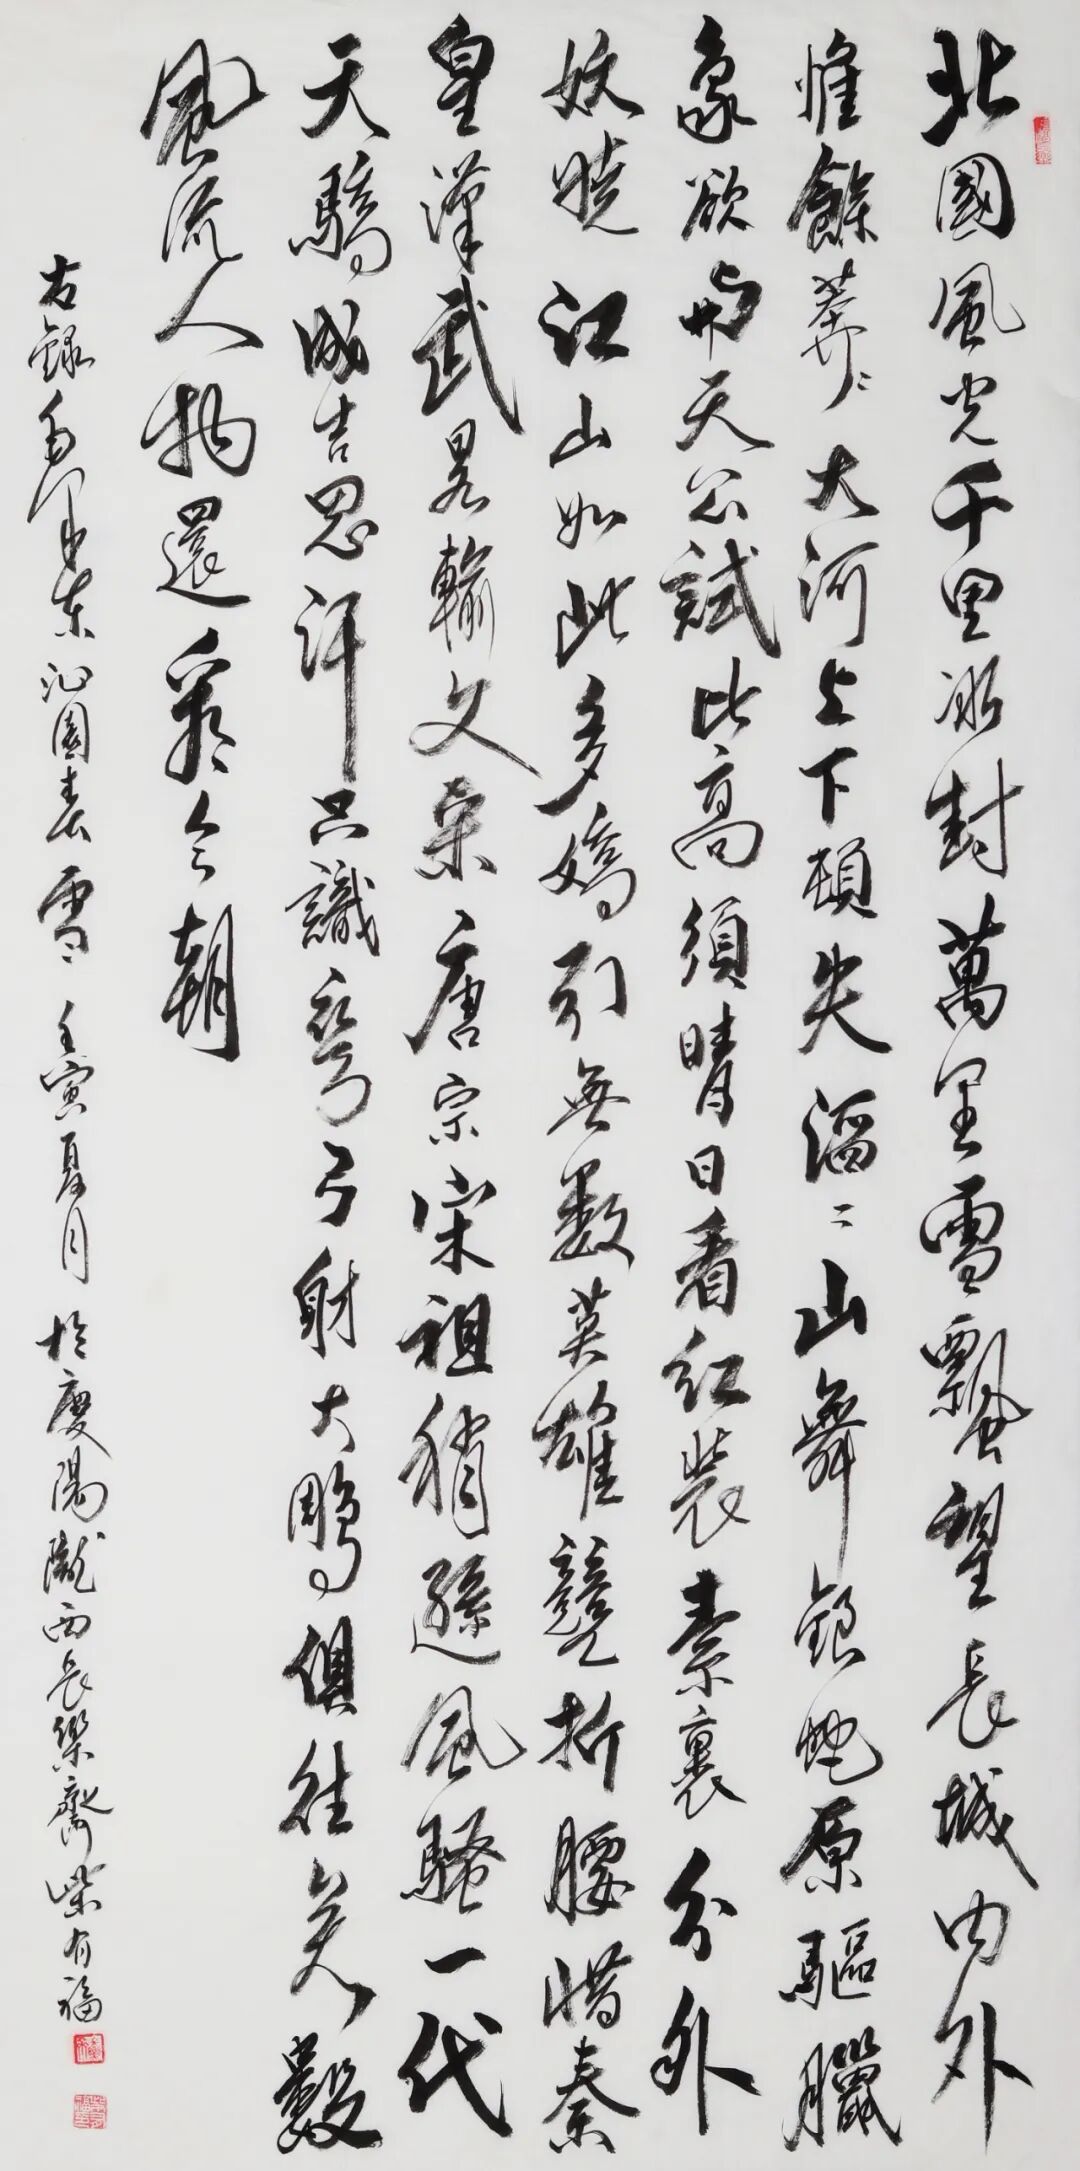 北國風光千里冰封萬里雪飄望長城內外
惟餘莽〻大河上下頓失滔〻山舞銀蛇原驅臘
象欲與天公試比高須晴日看紅裝素裹分外
妖嬈江山如此多嬌引無數英雄競折腰惜秦
皇漢武畧輸文采唐宗宋祖稍遜風騷一代
天驕成吉思汗只識彎弓射大鵰俱往矣數
風流人物還看今朝
右錄毛澤東沁園春雪 壬寅夏月 於慶陽隴西長樂齋柴有福